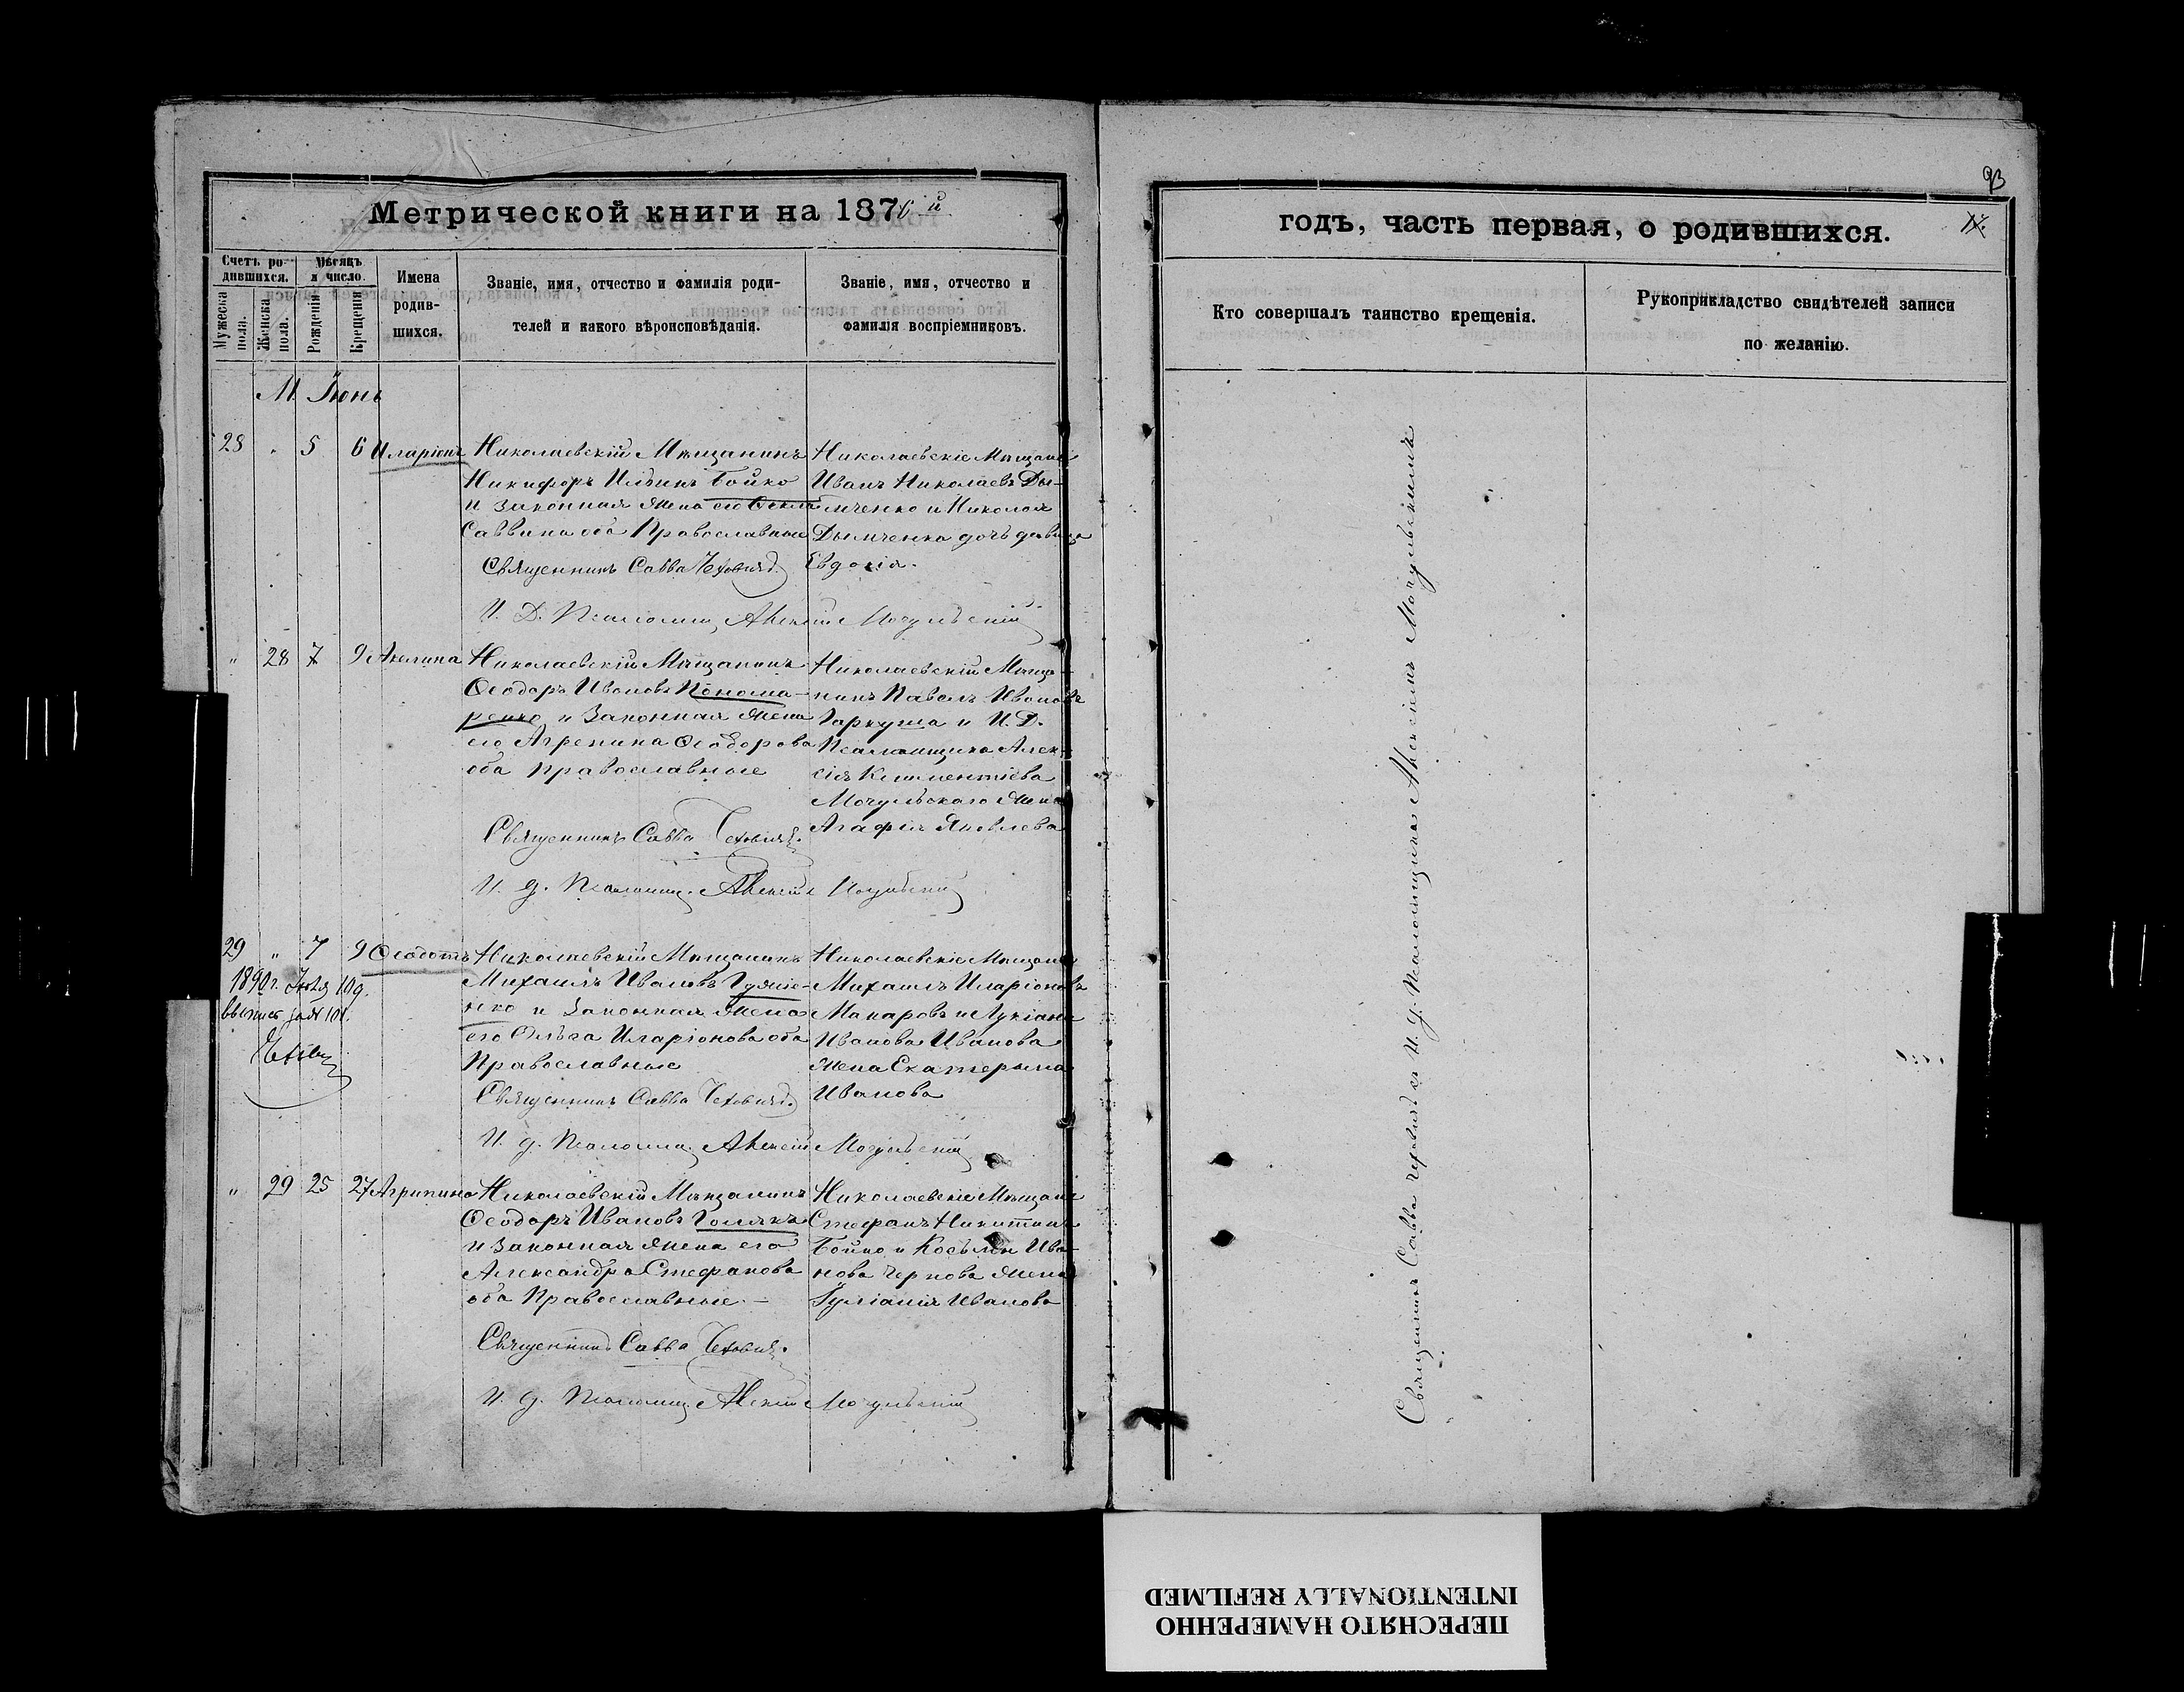 Метрической книги на 1876 й
Счетъ ро-
дившихся.
Мѣсяцъ
и число.
Мужеска
пола.
Женска
пола.
Рожденія
Крещенія
Имена
родив-
шихся.
Званіе, имя, отчество и фамилія роди-
телей и какого вѣроисповѣданія.
Званіе, имя, отчество и
фамилія воспріемниковъ.
М. Іюнь
28 " 5 6 Иларіонъ
Николаевскій Мѣщанинъ
Никифоръ Ильинъ Бойко
и законная жена его Ѳекла
Саввина оба Православные
Священникъ Савва
И. Д. Псаломщ. Алексій Мочульскій
Николаевскіе Мѣщане
Иванъ Николаевъ Ды-
мченко и Николая
Дымченка дочь девица
Евдокія.
" 28 7 9 Акилина
Николаевскій Мѣщанинъ
Ѳеодоръ Ивановъ Понома-
ренко и Законная жена
его Агрепина Ѳеодорова
оба православные
Священникъ Савва
И. д. Псаломщ. Алексій Мочульскій
Николаевскій Мѣща-
нинъ Павелъ Ивановъ
Гаркуша и И. Д.
Псаломщика Алек-
сія Климентіева
Мочульскаго жена
Агафія Яковлева
29 " 7 9 Ѳеодотъ
1890 г. Іюля 10 д.
Николаевскій Мѣщанинъ
Михаилъ Ивановъ
и Законная жена
его Ольга Иларіонова оба
Православные
Священникъ Савва
И. д. Псаломщ. Алексій Мочульскій
Николаевскіе Мѣщане
Михаилъ Иларіоновъ
Макаровъ и Лукіана
Иванова Иванова
жена Екатерына
Иванова
" 29 25 27 Агрипина
Николаевскій Мѣщанинъ
Ѳеодоръ Ивановъ Голякъ
и Законная жена его
Александра Стефанова
оба Православные. —
Священникъ Савва
И. д. Псаломщ. Алексій Мочульскій
Николаевскіе Мѣщане
Стефанъ Никитинъ
Бойко и Косьмы Ива-
нова Чернова жена
Іуліанія Иванова
93
годъ, часть первая, о родившихся.
Кто совершалъ таинство крещенія.
Рукоприкладство свидѣтелей записи
по желанію.
Священникъ Савва съ И. д. Псаломщика Алексіемъ Мочульскимъ
ПЕРЕСНЯТО НАМЕРЕННО
INTENTIONALLY REFILMED